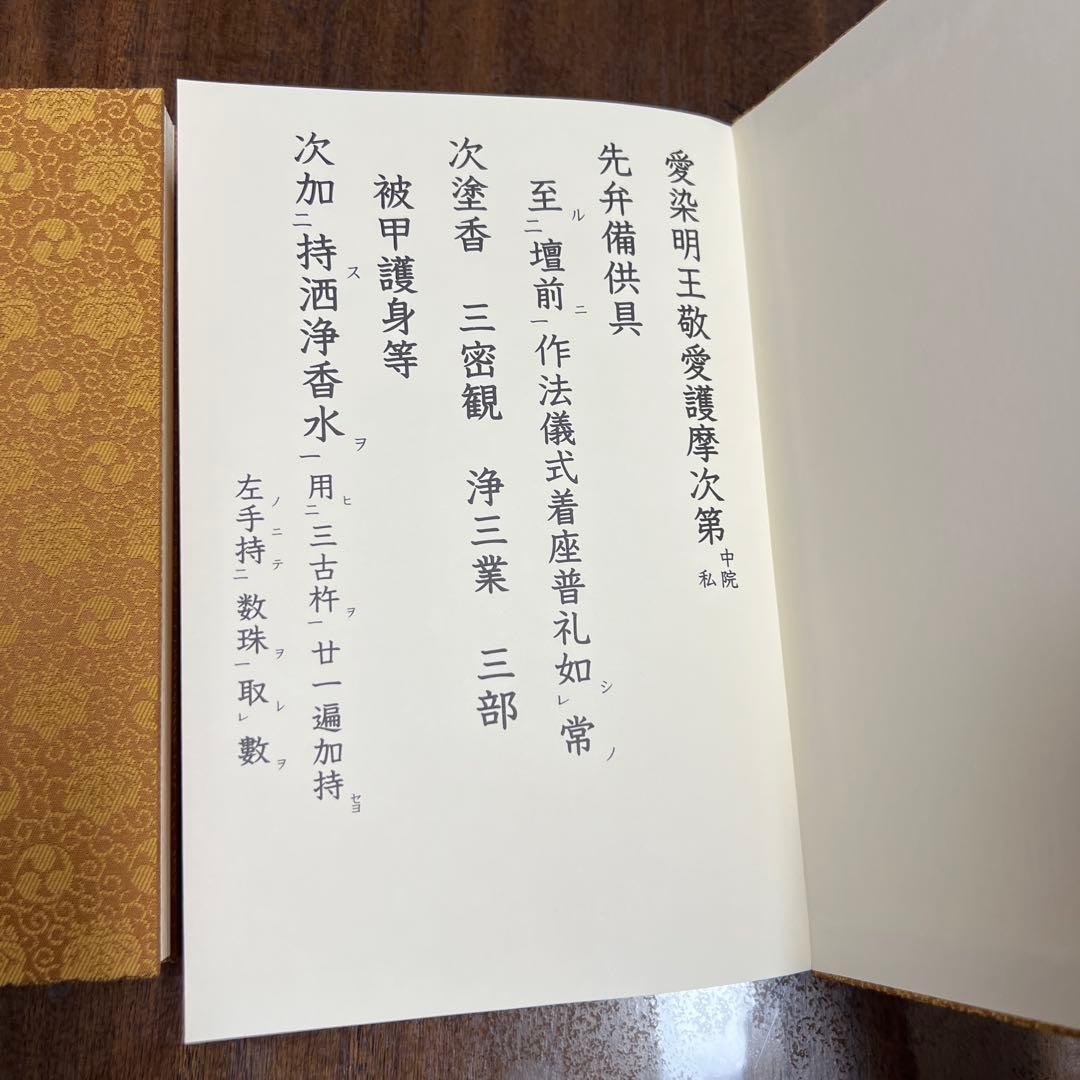 愛染明王敬愛護摩次第 中院 私
先弁備供具
至ル二壇前ニ一作法儀式着座普礼如シレ常ノ
次塗香 三密観 浄三業 三部
被甲護身等
次加二持ス洒浄香水ヲ一用ヒ二三古杵ヲ一廿一遍加持セヨ
左ノ手ニ持テ二数珠ヲ一取レレ數ヲ